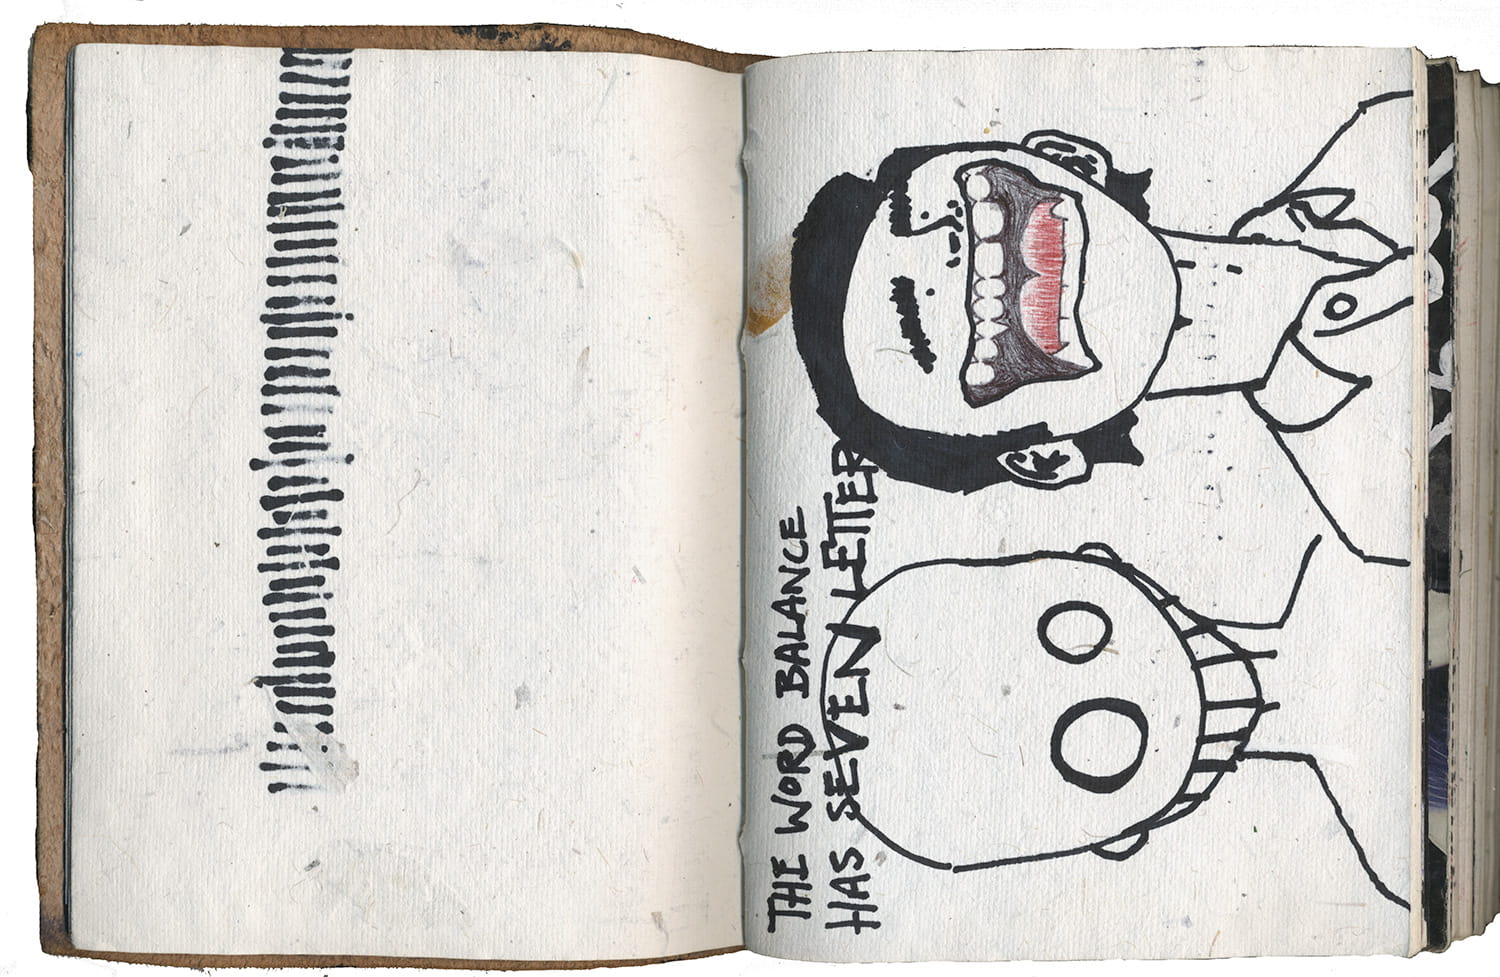 THE WORD BALANCE
HAS SEVEN LETTER